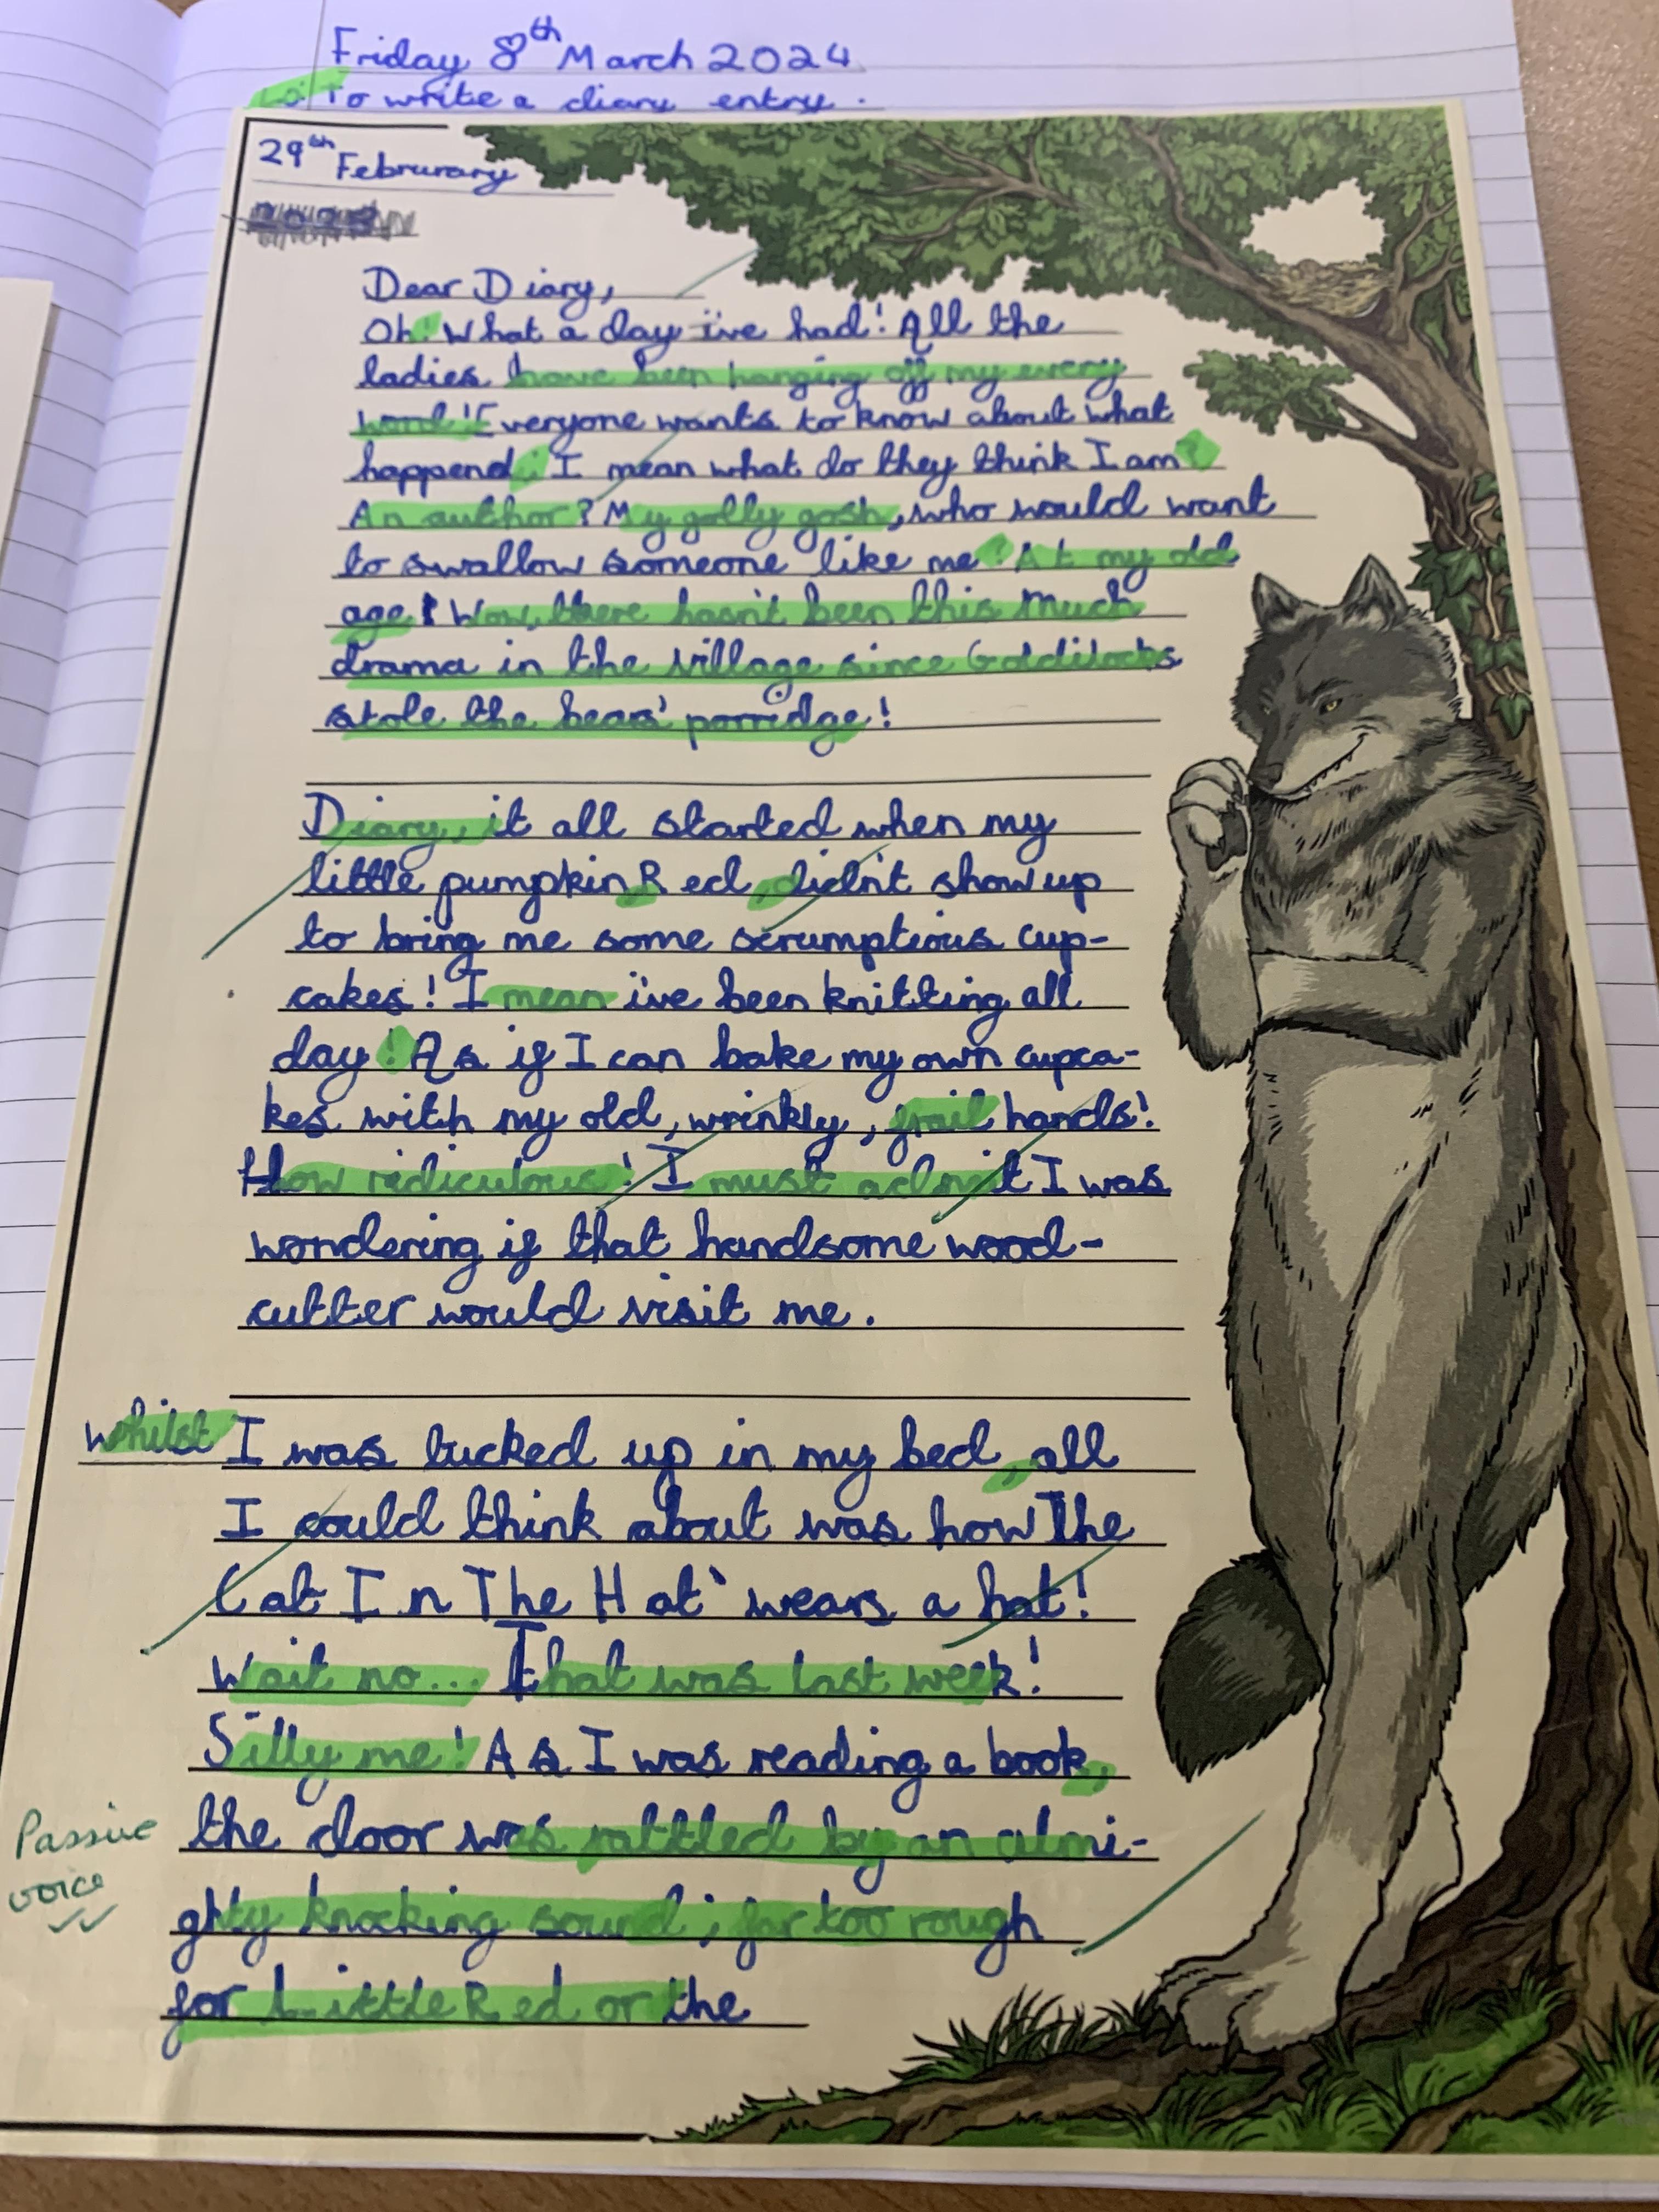 Friday 8th March 2024
Lo: To write a diary entry.
29th
Februrary
Dear Diary,
Oh! What a day i've had! All the
ladies have been hanging off my every
word! Everyone wants to know about what
happend; I mean what do they think I am?
An author? My golly gosh, who would want
to swallow someone like me? At my old
age! Wow, there hasn't been this much
drama in the village since Goldilocks
stole the bears' porridge!
Diary, it all started when my
little pumpkin, Red, didn't show up
to bring me some scrumptious cup-
cakes! I mean i've been knitting all
day! As if I can bake my own cupca-
kes with my old, wrinkly, frail hands!
How ridiculous! I must admit I was
wondering if that handsome wood-
cutter would visit me.
Whilst I was tucked up in my bed, all
I could think about was how 'The
Cat In The Hat' wears a hat!
Wait no... That was last week!
Silly me! As I was reading a book,
the door was rattled by an almi-
Passive
voice
ghty knocking sound; far too rough
for Little Red or the